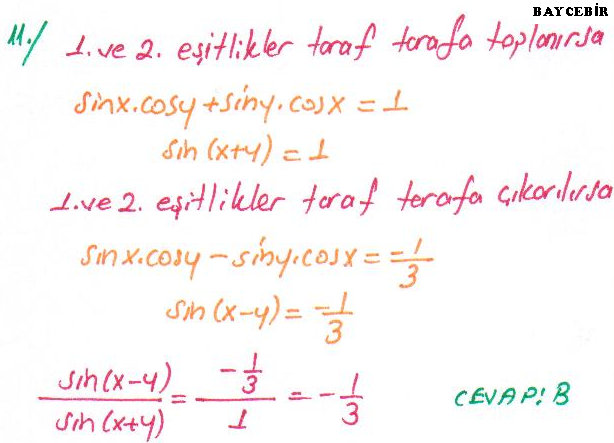 BAYCEBİR
11./ 1. ve 2. eşitlikler taraf tarafa toplanırsa
sinx.cosy+siny.cosx = 1
sin (x+y) = 1
1. ve 2. eşitlikler taraf terafa çıkarılırsa
sinx.cosy - siny.cosx = -1/3
sin (x-y) = -1/3
sin(x-y)/sin(x+y) = (-1/3)/1 = -1/3 CEVAP: B